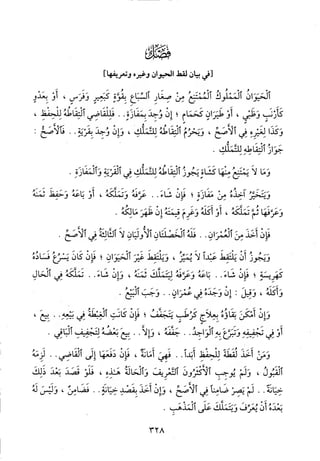 فَصْلٌ
[في بيان لقط الحيوان وغيره وتعريفها]
الْحَيَوَانُ الْمَمْلُوكُ الْمُمْتَنِعُ مِنْ صِغَارِ السِّبَاعِ بِقُوَّةٍ كَبَعِيرٍ وَفَرَسٍ ، أَوْ بِعَدْوٍ
كَأَرْنَبٍ وَظَبْيٍ ، أَوْ طَيَرَانٍ كَحَمَامٍ ؛ إِنْ وُجِدَ بِمَفَازَةٍ . . فَلِلْقَاضِي الْتِقَاطُهُ لِلْحِفْظِ ،
وَكَذَا لِغَيْرِهِ فِي الأَصَحِّ ، وَيَحْرُمُ الْتِقَاطُهُ لِلتَّمَلُّكِ ، وَإِنْ وُجِدَ بِقَرْيَةٍ . . فَالأَصَحُّ :
جَوَازُ الْتِقَاطِهِ لِلتَّمَلُّكِ .
وَمَا لاَ يَمْتَنِعُ مِنْهَا كَشَاةٍ يَجُوزُ الْتِقَاطُهُ لِلتَّمَلُّكِ فِي الْقَرْيَةِ وَالْمَفَازَةِ .
وَيَتَخَيَّرُ آخِذُهُ مِنْ مَفَازَةٍ ؛ فَإِنْ شَاءَ . . عَرَّفَهُ وَتَمَلَّكَهُ ، أَوْ بَاعَهُ وَحَفِظَ ثَمَنَهُ
وَعَرَّفَهَا ثُمَّ تَمَلَّكَهُ ، أَوْ أَكَلَهُ وَغَرِمَ قِيمَتَهُ إِنْ ظَهَرَ مَالِكُهُ .
فَإِنْ أَخَذَ مِنَ الْعُمْرَانِ . . فَلَهُ الْخَصْلَتَانِ الأُولَيَانِ لاَ الثَّالِثَةُ فِي الأَصَحِّ .
وَيَجُوزُ أَنْ يَلْتَقِطَ عَبْداً لاَ يُمَيِّزُ ، وَيَلْتَقِطُ غَيْرَ الْحَيَوَانِ ؛ فَإِنْ كَانَ يُسْرِعُ فَسَادُهُ
كَهَرِيسَةٍ ؛ فَإِنْ شَاءَ . . بَاعَهُ وَعَرَّفَهُ لِيَتَمَلَّكَ ثَمَنَهُ ، وَإِنْ شَاءَ . . تَمَلَّكَهُ فِي الْحَالِ
وَأَكَلَهُ ، وَقِيلَ : إِنْ وَجَدَهُ فِي عُمْرَانٍ . . وَجَبَ الْبَيْعُ .
وَإِنْ أَمْكَنَ بَقَاؤُهُ بِعِلاَجٍ كَرُطَبٍ يَتَجَفَّفُ ؛ فَإِنْ كَانَتِ الْغِبْطَةُ فِي بَيْعِهِ . . بِيعَ ،
أَوْ فِي تَجْفِيفِهِ وَتَبَرَّعَ بِهِ الْوَاجِدُ . . جَفَّفَهُ ، وَإِلاَّ . . بِيعَ بَعْضُهُ لِتَجْفِيفِ الْبَاقِي .
وَمَنْ أَخَذَ لُقَطَةً لِلْحِفْظِ أَبَداً . . فَهِيَ أَمَانَةٌ ، فَإِنْ دَفَعَهَا إِلَى الْقَاضِي . . لَزِمَهُ
الْقَبُولُ ، وَلَمْ يُوجِبِ الأَكْثَرُونَ التَّعْرِيفَ وَالْحَالَةُ هَذِهِ ، فَلَوْ قَصَدَ بَعْدَ ذَلِكَ
خِيَانَةً . . لَمْ يَصِرْ ضَامِناً فِي الأَصَحِّ ، وَإِنْ أَخَذَ بِقَصْدِ خِيَانَةٍ . . فَضَامِنٌ ، وَلَيْسَ لَهُ
بَعْدَهُ أَنْ يُعَرِّفَ وَيَتَمَلَّكَ عَلَى الْمَذْهَبِ .
٣٢٨